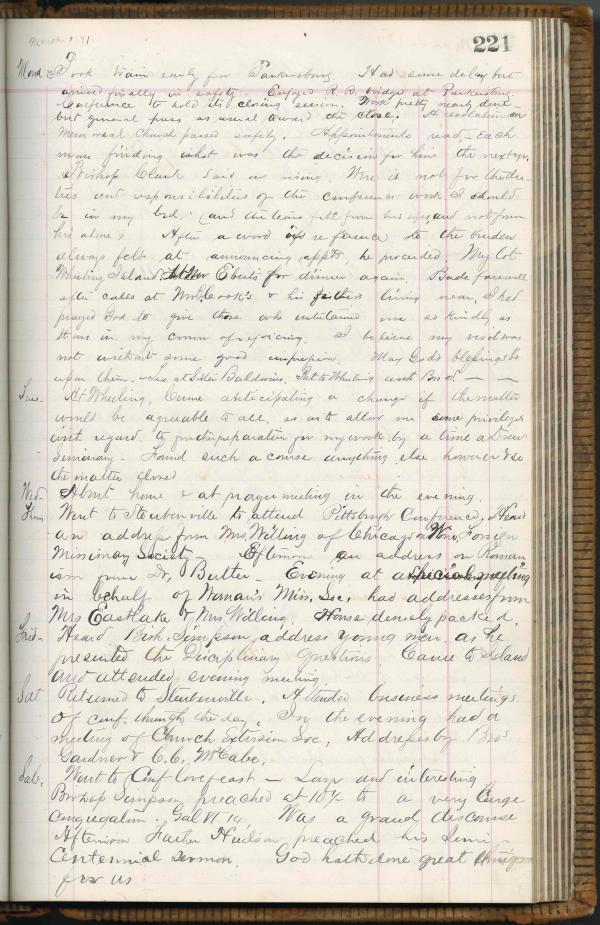 March 1871
221
Mond 13 Took train early for Parkersburg. Had some delay but
arrived finally in safety. Enjoyed R. R. bridge at Parkersburg.
Conference to hold its closing session. Work pretty nearly done -
but general press as usual toward the close. A resolution on
Memorial Church passed safely. Appointments read, - Each
man finding what was the decision for him the next yr,
Bishop Clark said on rising. Were it not for the du-
ties and responsibilities of the conference work I should
be in my bed; (and the tears fell from his eyes, and not from
his alone) After a word in reference to the burden
always felt at announcing appts, he proceeded. My lot
Wheeling Island. At Mr Eberts for dinner again. Bade farewell
after calls at & his father's living near, I had
prayed God to give those who entertained me so kindly, as
stars in my crown of rejoicing. I believe my visit was
not without some good impression. May God's blessings be
upon them. at Sister Baldwins, to Wheeling with Bro
Tues. At Wheeling, Came anticipating a change if the matter
would be agreeable to all, so as to allow me some privileges
with regard to further preparation for my work by a time at Drew
Seminary - Found such a course anything else however & so
the matter closed
Wed - About home & at prayer meeting in the evening.
Thur Went to Steubenville to attend Pittsburgh Conference, Heard
an address from Mrs. Willing of Chicago on Wom. Foreign
Missionary Society - Afternoon an address on Roman
ism from Dr. Butler - Evening at a special meeting
in behalf of Woman's Miss. Soc. had addresses from
Mrs Eastlake & Mrs. Willing. House densely packed.
Frid - Heard Bish. Simpson address young men as he
presented the Disciplinary Questions. Came to Island
and attended evening meeting.
Sat Returned to Steubenville. Attended business meetings
of conf. through the day. In the evening had a
meeting of Church Extension Soc, Addresses by Bros
Gardner & C. C. McCabe.
Sab. Went to Conf love feast - Large and interesting
Bishop Simpson preached at 10½ to a very large
congregation. Gal VI 14 Was a grand discourse
Afternoon Father Hudson preached his Semi-
Centennial Sermon. God hath done great things
for us